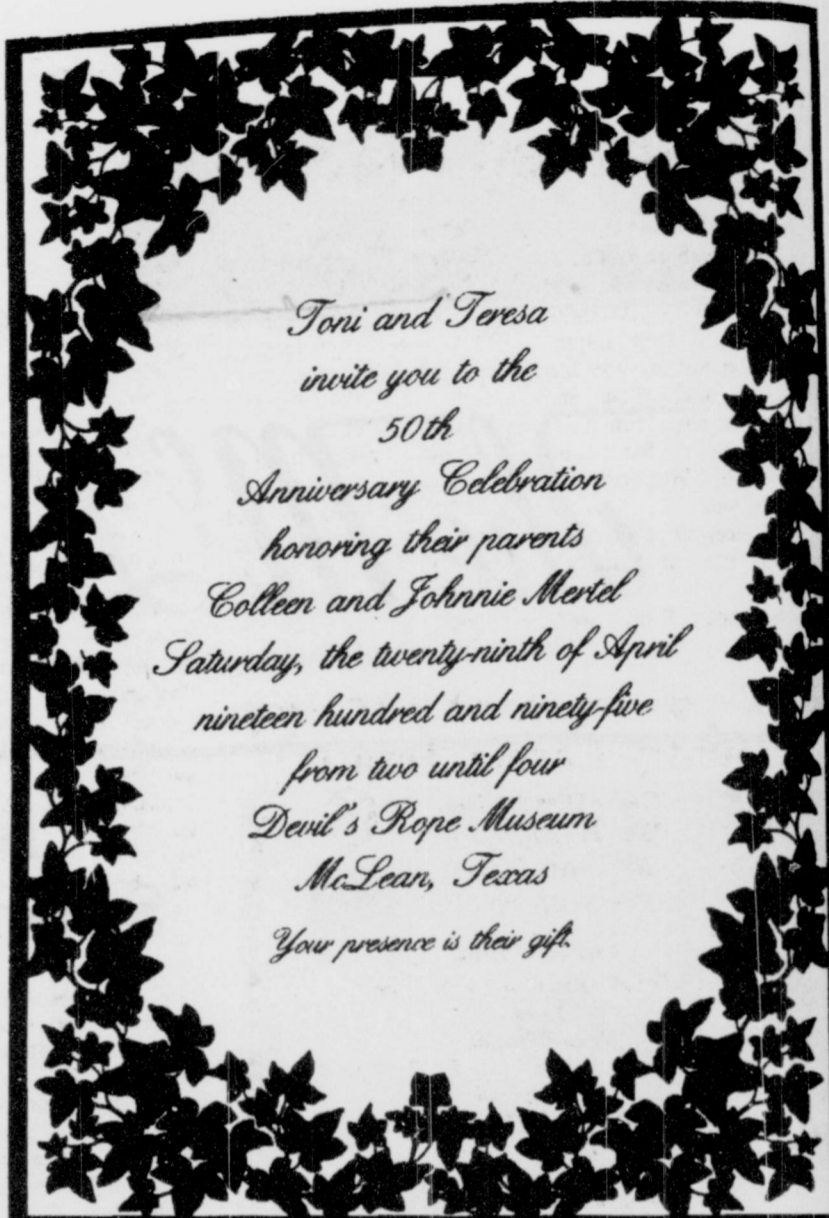 Toni and Teresa
invite you to the
50th
Anniversary Celebration
honoring their parents
Colleen and Johnnie Mertel
Saturday, the twenty-ninth of April
nineteen hundred and ninety-five
from two until four
Devil's Rope Museum
McLean, Texas
Your presence is their gift.